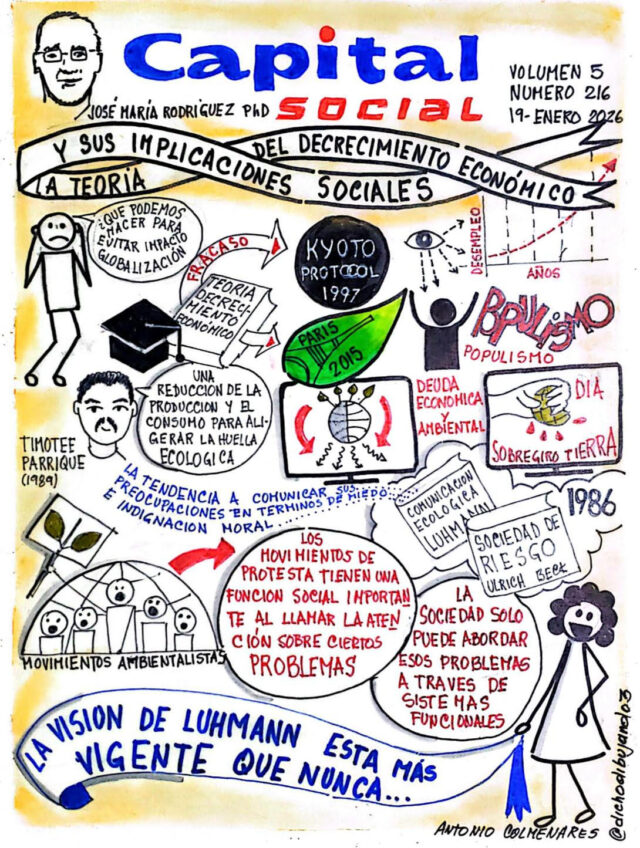 Capital
SOCIAL
JOSÉ MARÍA RODRÍGUEZ PhD
VOLUMEN 5
NUMERO 216
19-ENERO 2026
LA TEORÍA
DEL DECRECIMIENTO ECONÓMICO
Y SUS IMPLICACIONES SOCIALES
¿QUE PODEMOS
HACER PARA
EVITAR IMPACTO
GLOBALIZACIÓN
FRACASO
KYOTO
PROTOCOL
1997
DESEMPLEO
AÑOS
TEORIA
DECRECI-
MIENTO
ECONÓMICO
PARIS
2015
POPULISMO
POPULISMO
UNA
REDUCCION DE LA
PRODUCCION Y EL
CONSUMO PARA ALI-
GERAR LA HUELLA
ECOLOGICA
TIMOTEE
PARRIQUE
(1989)
DEUDA
ECONOMICA
Y
AMBIENTAL
DIA
SOBREGIRO TIERRA
LA TENDENCIA A COMUNICAR SUS
PREOCUPACIONES EN TERMINOS DE MIEDO
E INDIGNACION MORAL..........
COMUNICACION
ECOLOGICA
LUHMANN
SOCIEDAD DE
RIESGO
ULRICH BECK
1986
MOVIMIENTOS AMBIENTALISTAS
LOS
MOVIMIENTOS DE
PROTESTA TIENEN UNA
FUNCION SOCIAL IMPORTAN
TE AL LLAMAR LA ATEN
CIÓN SOBRE CIERTOS
PROBLEMAS
LA
SOCIEDAD SOLO
PUEDE ABORDAR
ESOS PROBLEMAS
A TRAVES DE
SISTEMAS
FUNCIONALES
LA VISION DE LUHMANN ESTA MÁS
VIGENTE QUE NUNCA...
ANTONIO COLMENARES
@dichodibujando03